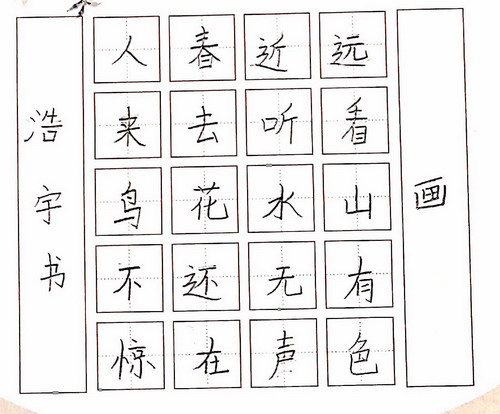 画
远看山有色
近听水无声
春去花还在
人来鸟不惊
浩宇书